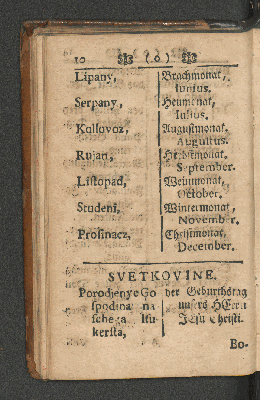 10 ( o )
Lipany, Brachmonat,
Junius.
Serpany, Heumonat,
Julius.
Kullovoz, Augustmonat,
Augustus.
Rujan, Herbstmonat,
September.
Listopad, Weinmonat,
October.
Studeni, Wintermonat,
November.
Prosinacz, Christmonat,
December.
SVETKOVINE.
Porodjenye Go der Geburthstag
spodina na unsers HErrn
Jesu Christi.
kersta,
Bo-